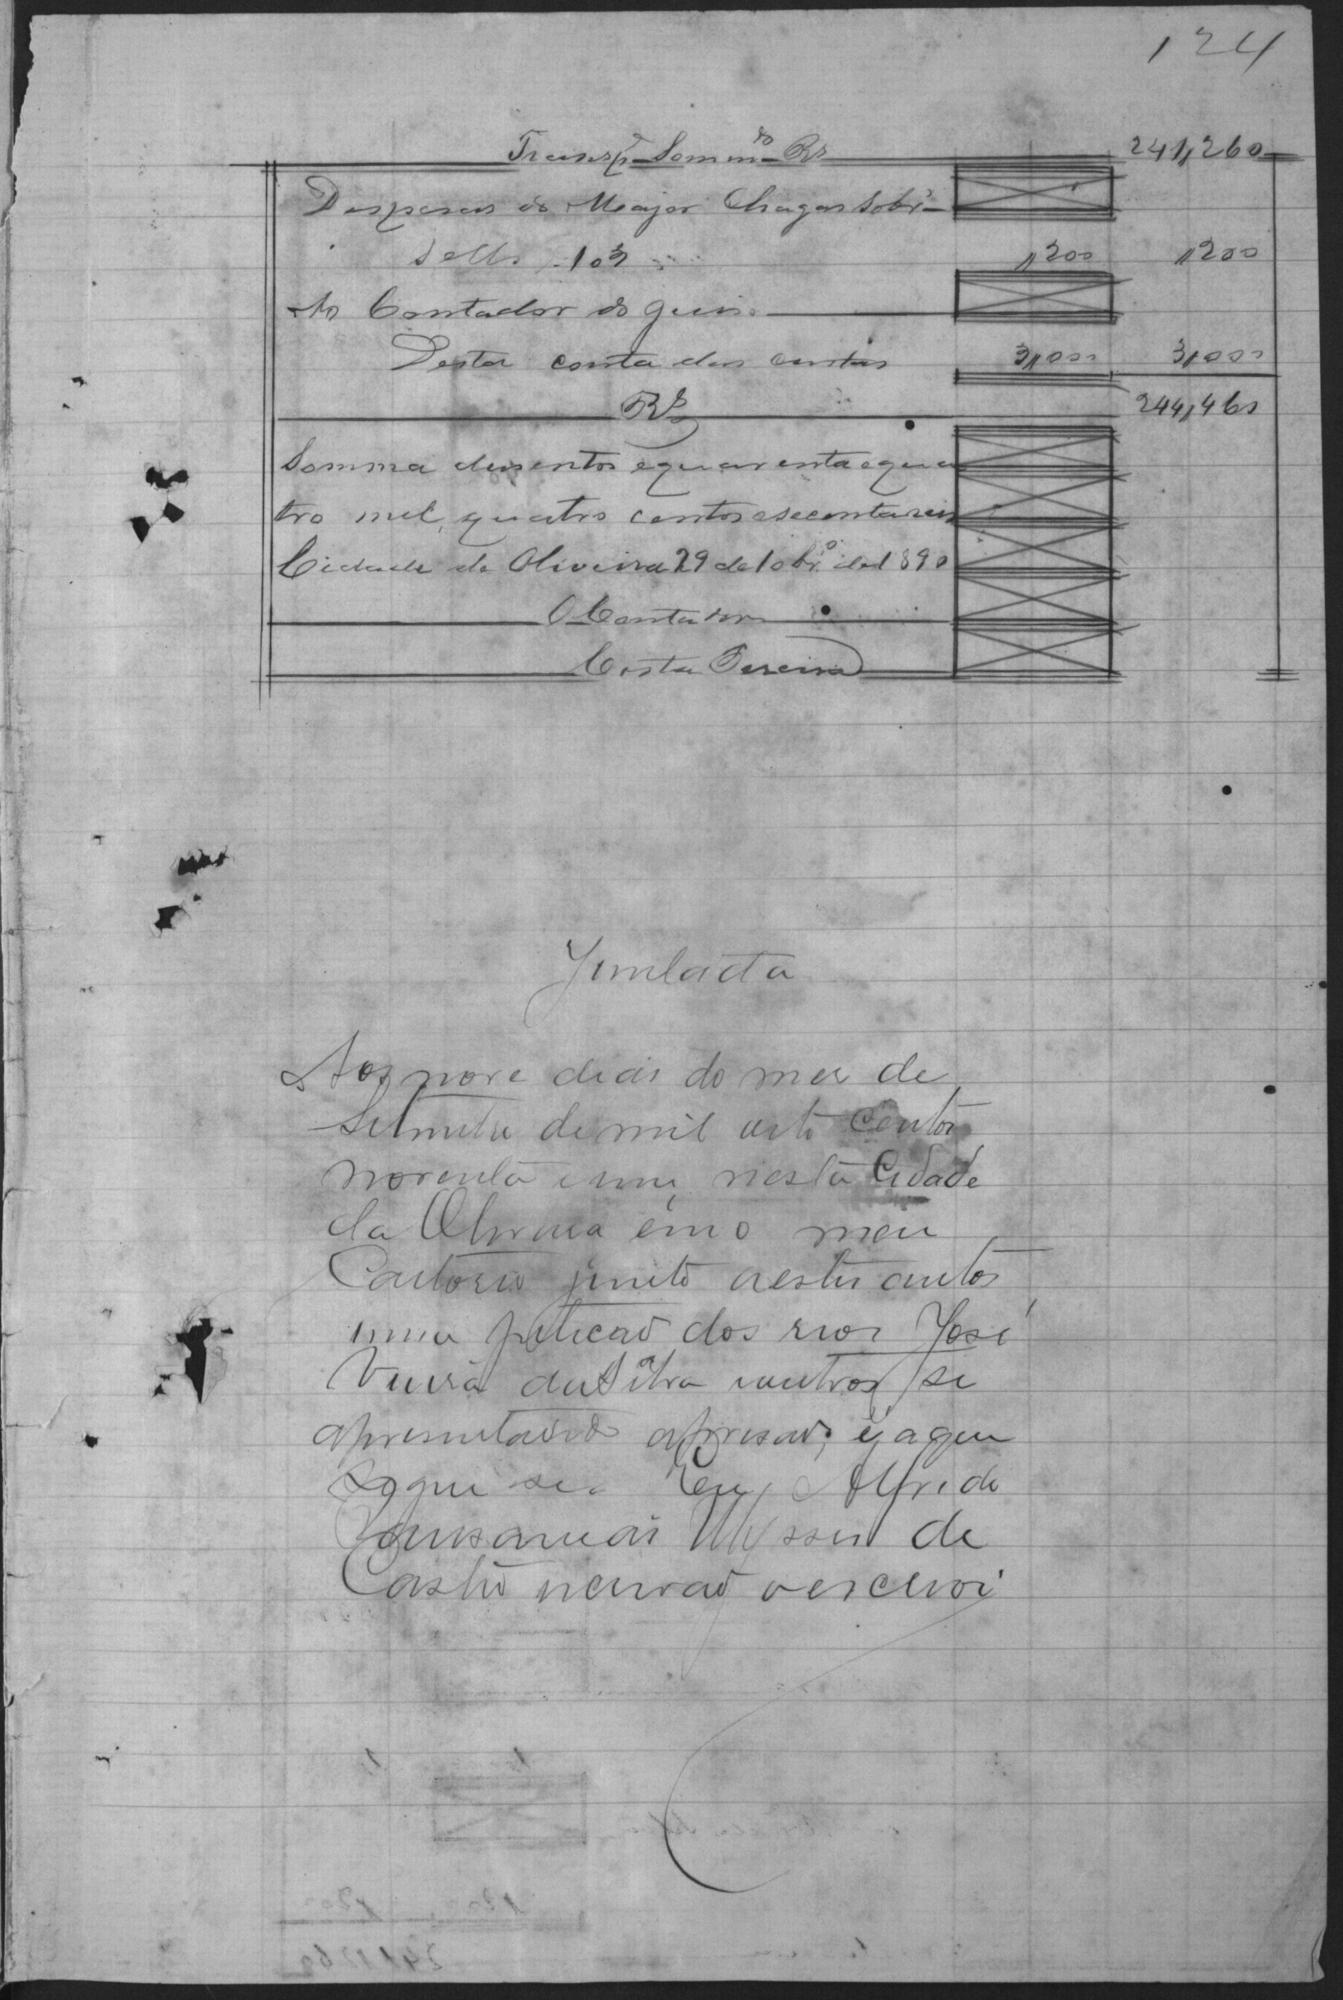 124
Transp. Somm.do Rs 241,260
Despesas do Major Chagas Sobr.
Sello 103 ,200 ,200
Ao Contador do Juiso
Desta conta das custas 3,000 3,000
Rs 244,460
Somma dusentos e quarenta e qua
tro mil, quatro centos e secenta reis
Cidade de Oliveira 29 de 10br.o de 1890
O Contador
Costa Pereira
Junlada
Aos nove dias do mes de
Setembro de mil oito centos
noventa e um, nesta Cidade
da Oliveira em o meu
Cartorio junto a estes autos
uma peticão dos reos José
Vieira da Silva e outros se
apresentando a prisão, e ja que
segue se. Eu, Alfredo
Pausanias Ulysses de
Castro escrivão o escrevi